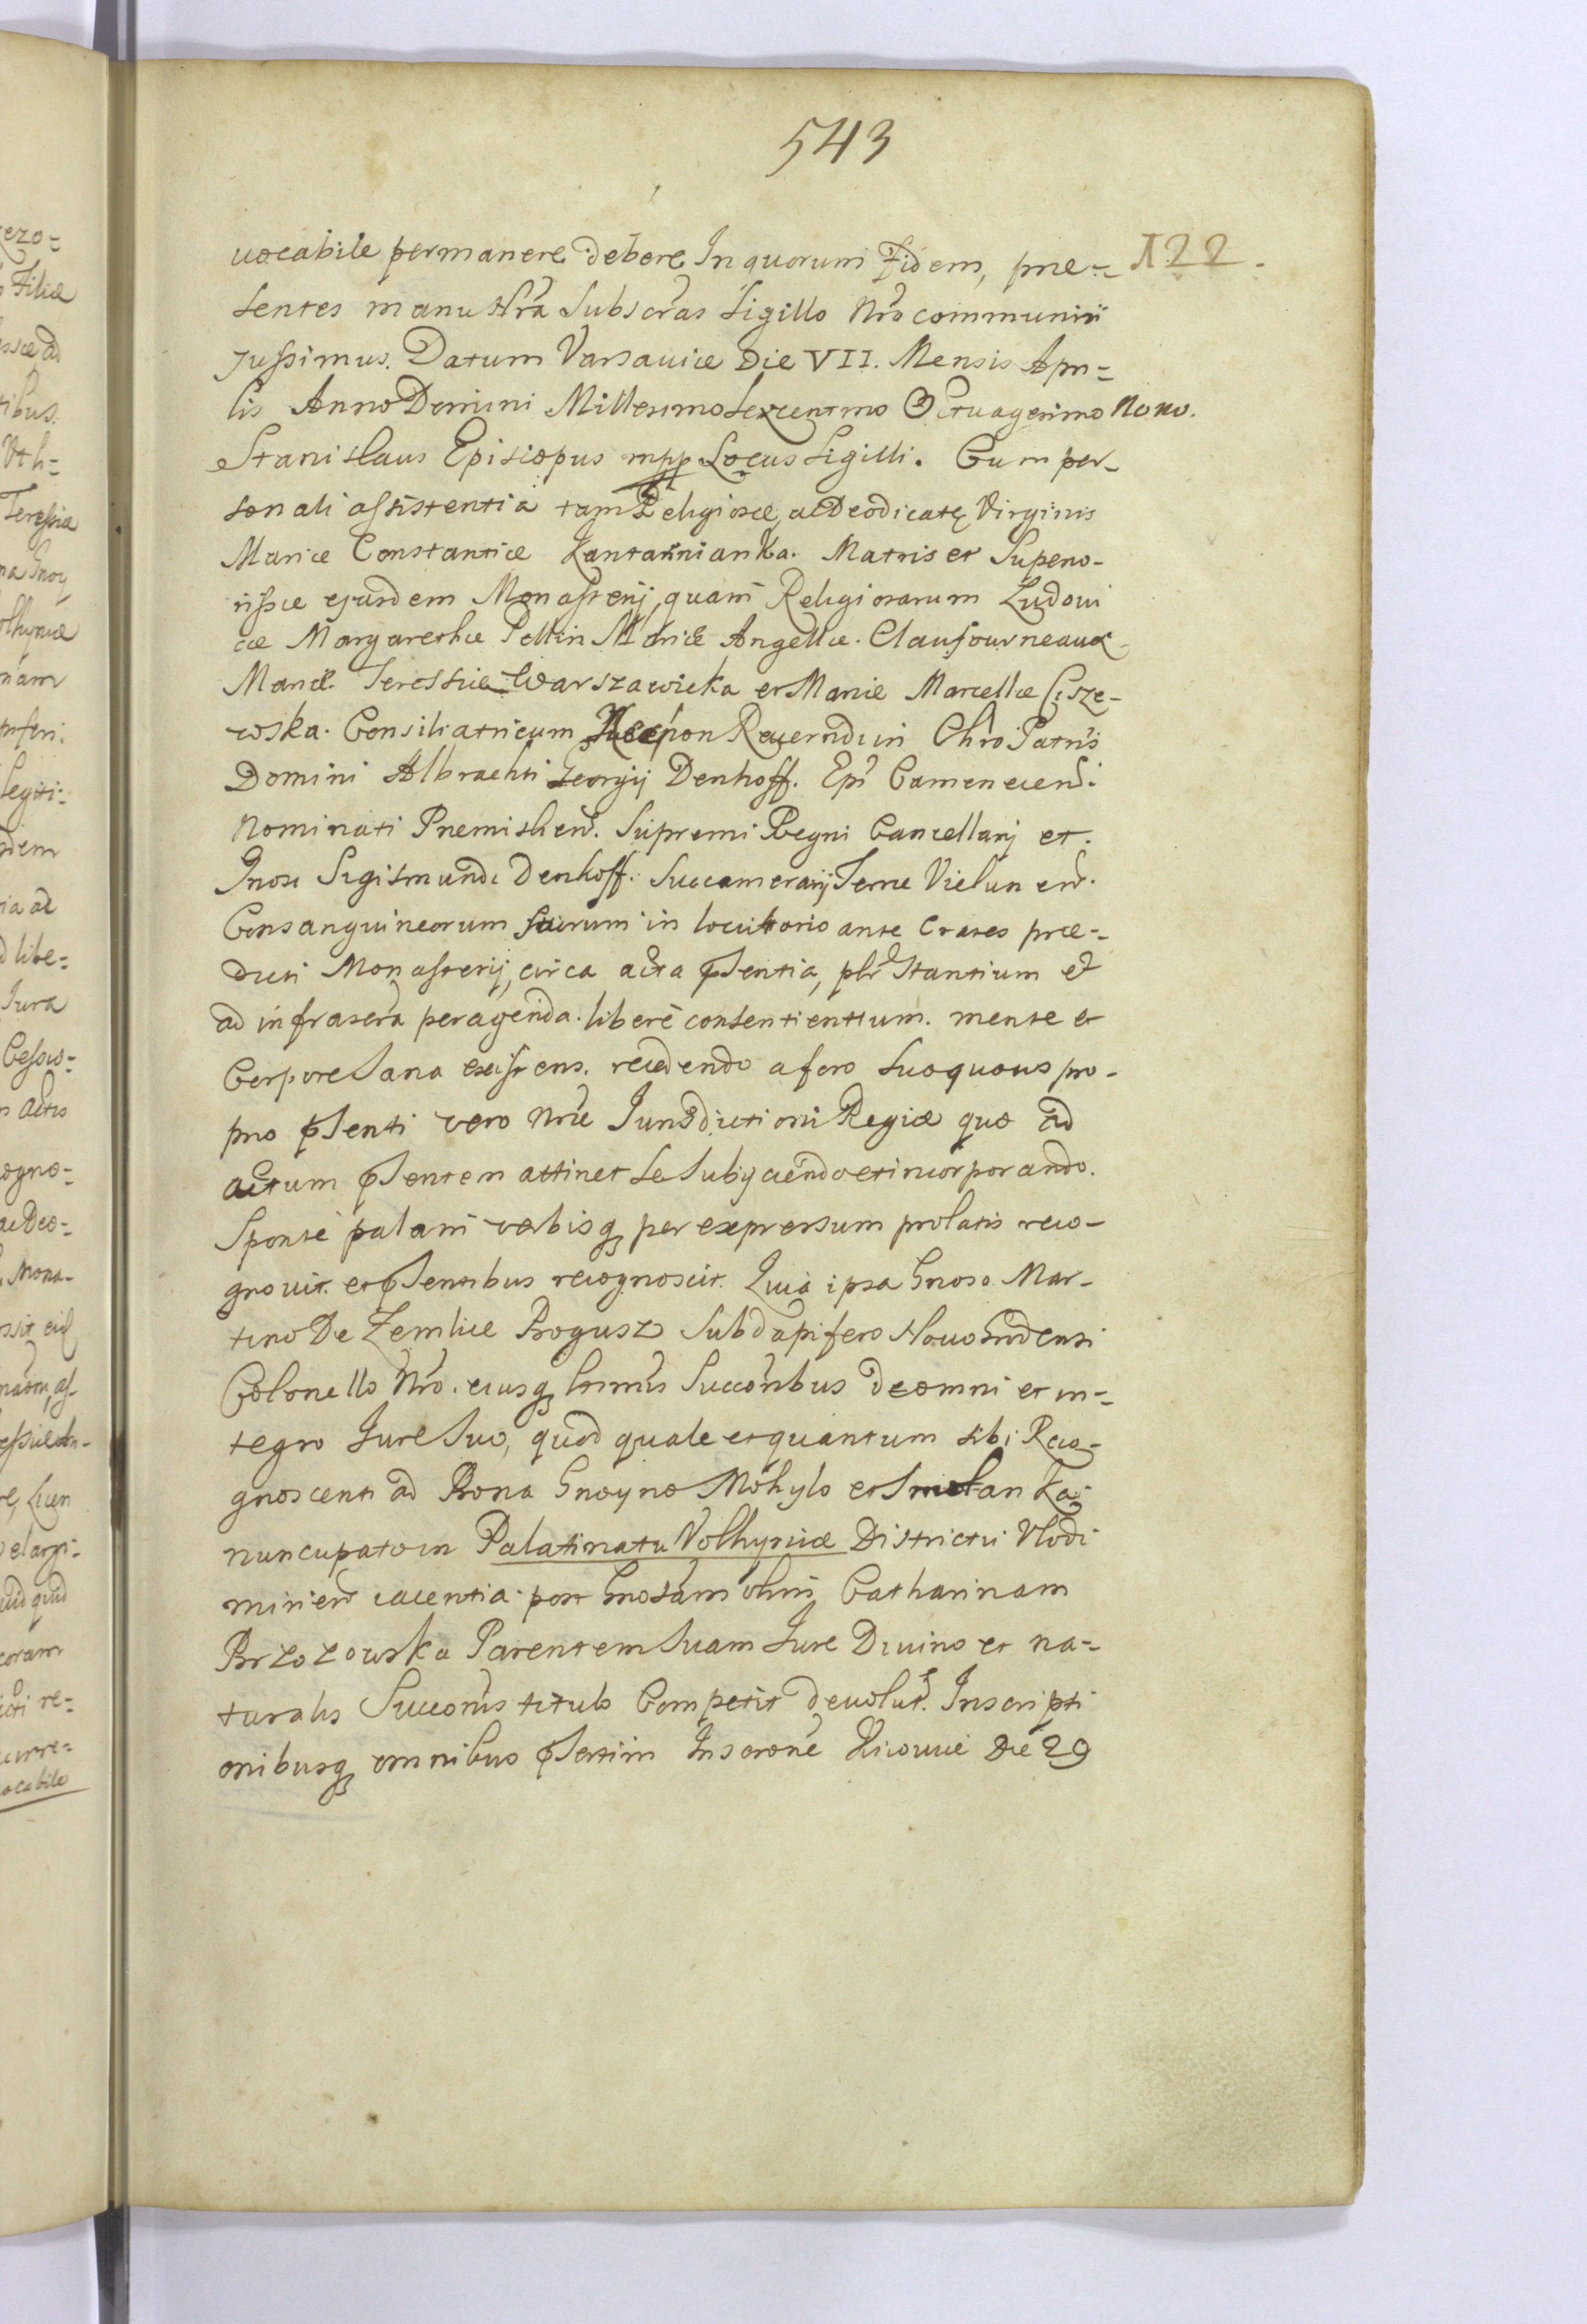 543
122
uocabile permanere debere In quorum Fidem, præ-
sentes manu Nrã Subscrãs Sigillo Nrõ communiri
Jussimus. Datum Varsaviæ Die VII. Mensis Apri-
lis Anno Domini Millesimo Sexcentmo Octuagesimo Nono.
Stanislaus Episcopus mpp Locus Sigilli. Cum per-
sonali assistentia tam Religiosæ, ac Deodicatę Virginis
Mariæ Constantiæ Matris et Superio-
rissæ ejusdem Monasterij, quam Religiosarum Ludoui
cæ Margarethæ Pettin Mariæ Angellæ. Claufourneaux
Mariæ Teressiæ Warszawicka et Mariæ Marcellæ Cisze-
wska. Consiliatricum Reuerndi in Chrõ Patris
Domini Albrachti Georgij Denhoff. Epĩ Camenecen.
Nominati Premislien. Supremi Regni Cancellarij et.
Gnosi Sigismundi Denhoff. Succamerarij Terræ Vielunen.
Consanguineorum Suorum in locuttorio ante Crates præ-
dicti Monasterij, circa acta pSentia, Stantium et
ad infrascrã peragenda. liberè consentientium. mente et
Corpore Sana existens. recedendo a foro Suo quouis pro-
prio pSenti vero Nræ Jurisdictioni Regiæ quo ad
actum pSentem attinet Se Subijciendo et incorporando.
Sponte palam verbisq per expressum prolatis reco-
gnouit. et pSentibus recognoscit. Quia ipsa Gnoso Mar-
tino De Zemlice Rogusz Subdapifero Nouogrodensi
Colonello Nrõ. eiusq Succoribus de omni et in-
tegro Jure Suo, quod quale et quantum sibi Reco-
gnoscenti ad Bona Gnoyno Mohylo et
nuncupato in Palatinatu Volhyniæ Districtu Vlodi
mirien iacentia. post Gnosam olim Catharinam
Brzozowska Parentem Suam Jure Diuino et na-
turalis Succonis titulo Competit deuolut. Inscripti
onibusq omnibus pSertim Inscrone Kiouiæ Die 29